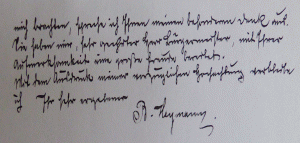 mich brachten, spreche ich Ihnen meinen besonderen Dank aus.
Sie haben mir, sehr geehrter Herr Bürgermeister, mit Ihrer
Aufmerksamkeit eine große Freude bereitet.
Mit dem Ausdruck meiner vorzüglichen Hochachtung verbleibe
ich Ihr sehr ergebener